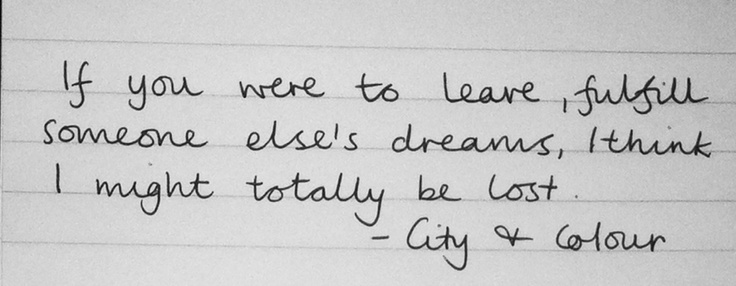 If you were to leave, fulfill
someone else's dreams, I think
I might totally be lost.
- City & Colour